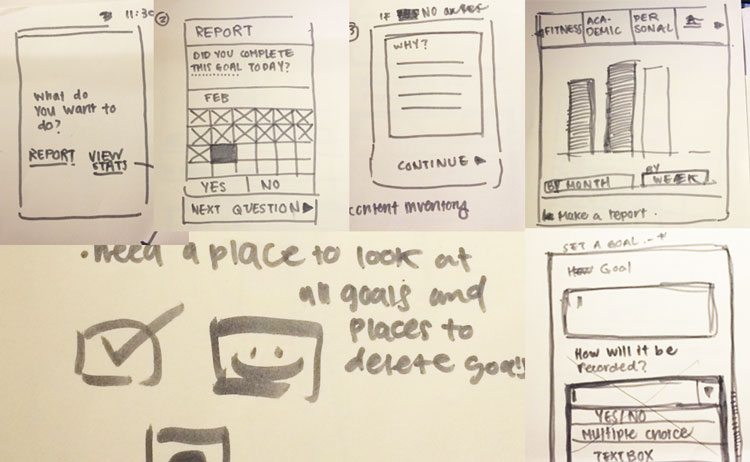 11:30
What do
You Want to
do?
REPORT VIEW
STATS
2
REPORT
DID YOU COMPLETE
THIS GOAL TODAY?
FEB
YES NO
NEXT QUESTION
3
IF NO
WHY?
CONTINUE
content inventory
FITNESS ACA-
DEMIC PER
SONAL
BY MONTH BY
WEEK
Make a report.
• need a place to look at
all goals and
places to
delete goals
SET A GOAL
Goal
How will it be
recorded?
YES/NO
Multiple choice
TEXT BOX